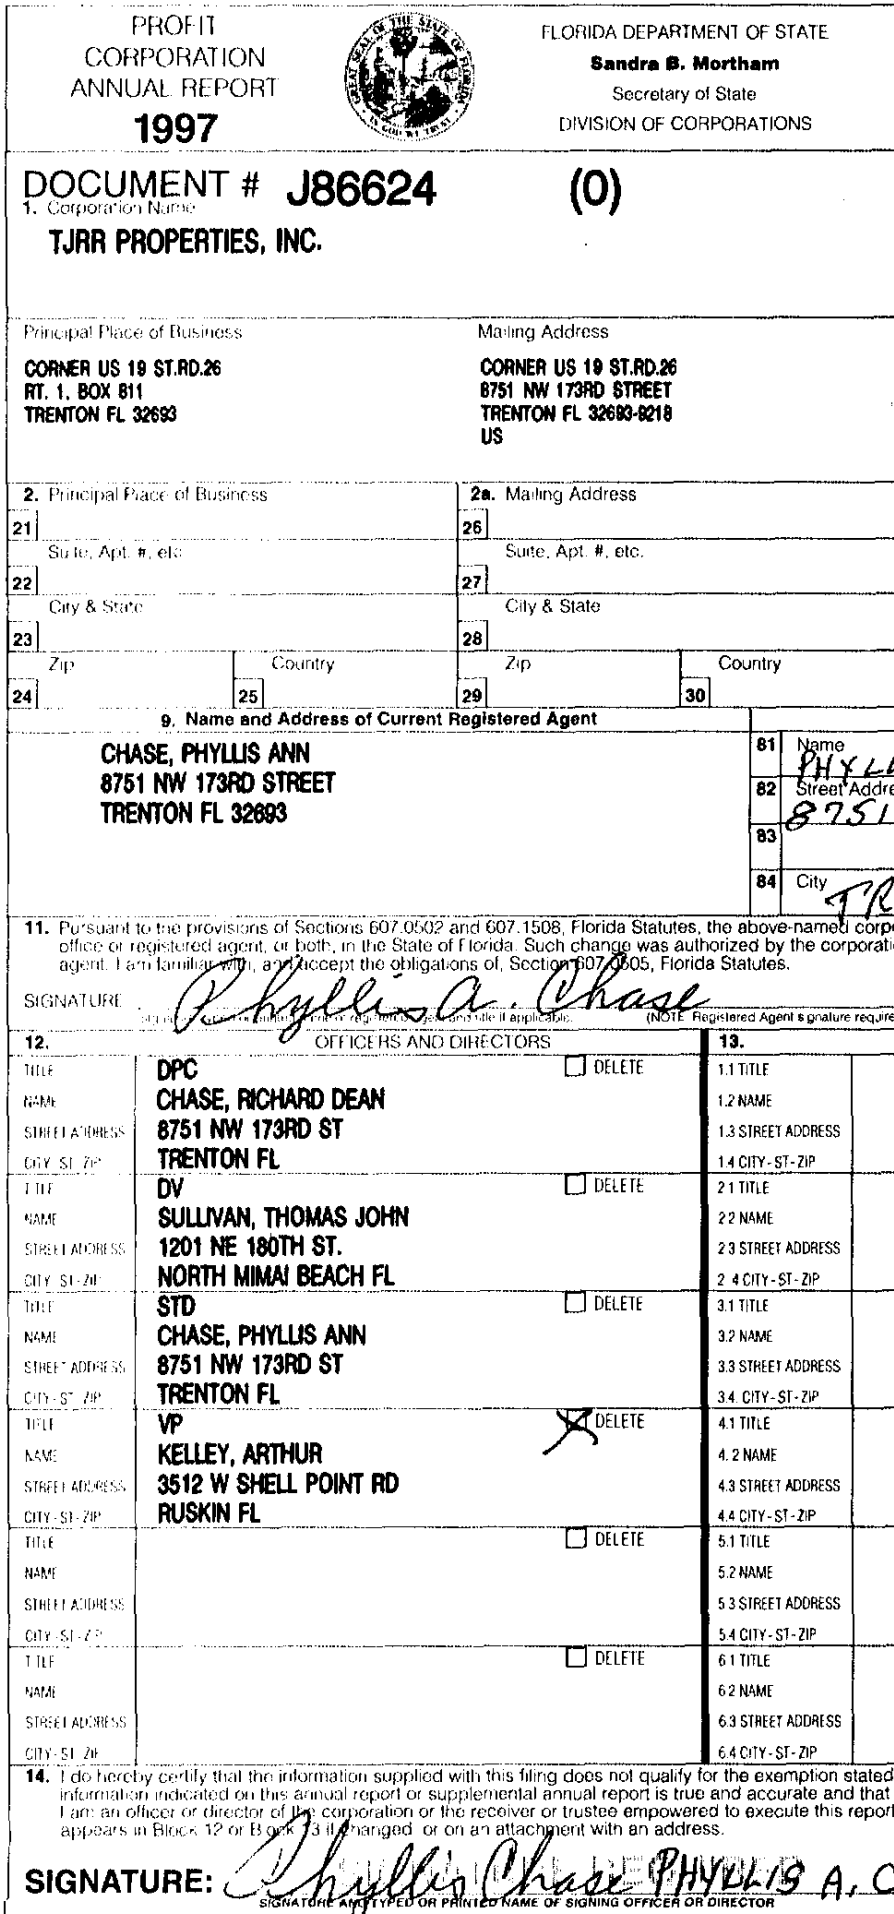 PROFIT
CORPORATION
ANNUAL REPORT
1997
GREAT SEAL OF THE STATE OF FLORIDA
IN GOD WE TRUST
FLORIDA DEPARTMENT OF STATE
Sandra B. Mortham
Secretary of State
DIVISION OF CORPORATIONS
DOCUMENT # J86624 (0)
1. Corporation Name
TJRR PROPERTIES, INC.
Principal Place of Business
CORNER US 19 ST.RD.26
RT. 1, BOX 811
TRENTON FL 32693
Mailing Address
CORNER US 19 ST.RD.26
8751 NW 173RD STREET
TRENTON FL 32693-9218
US
2. Principal Place of Business
21
Suite, Apt. #, etc.
22
City & State
23
Zip
24
Country
25
2a. Mailing Address
26
Suite, Apt. #, etc.
27
City & State
28
Zip
29
Country
30
9. Name and Address of Current Registered Agent
CHASE, PHYLLIS ANN
8751 NW 173RD STREET
TRENTON FL 32693
81 Name
PHYLL
82 Street Addre
8751
83
84 City
TR
11. Pursuant to the provisions of Sections 607.0502 and 607.1508, Florida Statutes, the above-named corp
office or registered agent, or both, in the State of Florida. Such change was authorized by the corporati
agent. I am familiar with, and accept the obligations of, Section 607.0505, Florida Statutes.
SIGNATURE Phyllis A. Chase
title if applicable. (NOTE Registered Agent signature require
12. OFFICERS AND DIRECTORS 13.
TITLE DPC DELETE 1.1 TITLE
NAME CHASE, RICHARD DEAN 1.2 NAME
STREET ADDRESS 8751 NW 173RD ST 1.3 STREET ADDRESS
CITY-ST-ZIP TRENTON FL 1.4 CITY-ST-ZIP
TITLE DV DELETE 2 1 TITLE
NAME SULLIVAN, THOMAS JOHN 2 2 NAME
STREET ADDRESS 1201 NE 180TH ST. 2 3 STREET ADDRESS
CITY-ST-ZIP NORTH MIMAI BEACH FL 2 4 CITY-ST-ZIP
TITLE STD DELETE 3.1 TITLE
NAME CHASE, PHYLLIS ANN 3.2 NAME
STREET ADDRESS 8751 NW 173RD ST 3.3 STREET ADDRESS
CITY-ST-ZIP TRENTON FL 3.4. CITY-ST-ZIP
TITLE VP X DELETE 4.1 TITLE
NAME KELLEY, ARTHUR 4. 2 NAME
STREET ADDRESS 3512 W SHELL POINT RD 4.3 STREET ADDRESS
CITY-ST-ZIP RUSKIN FL 4.4 CITY-ST-ZIP
TITLE DELETE 5.1 TITLE
NAME 5.2 NAME
STREET ADDRESS 5 3 STREET ADDRESS
CITY-ST-ZIP 5.4 CITY-ST-ZIP
TITLE DELETE 6 1 TITLE
NAME 6 2 NAME
STREET ADDRESS 6.3 STREET ADDRESS
CITY-ST-ZIP 6.4 CITY-ST-ZIP
14. I do hereby certify that the information supplied with this filing does not qualify for the exemption stated
information indicated on this annual report or supplemental annual report is true and accurate and that
I am an officer or director of the corporation or the receiver or trustee empowered to execute this report
appears in Block 12 or Block 13 if changed, or on an attachment with an address.
SIGNATURE: Phyllis Chase PHYLLIS A. C
SIGNATURE AND TYPED OR PRINTED NAME OF SIGNING OFFICER OR DIRECTOR